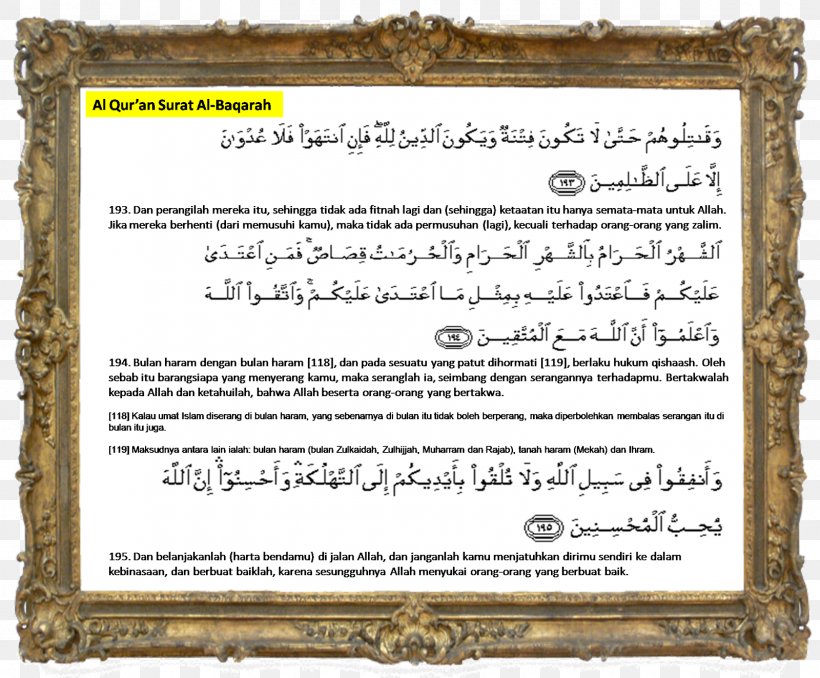 Al Qur'an Surat Al-Baqarah
وَقَٰتِلُوهُمْ حَتَّىٰ لَا تَكُونَ فِتْنَةٌ وَيَكُونَ ٱلدِّينُ لِلَّهِ ۖ فَإِنِ ٱنتَهَوْا۟ فَلَا عُدْوَٰنَ
إِلَّا عَلَى ٱلظَّٰلِمِينَ ١٩٣
193. Dan perangilah mereka itu, sehingga tidak ada fitnah lagi dan (sehingga) ketaatan itu hanya semata-mata untuk Allah.
Jika mereka berhenti (dari memusuhi kamu), maka tidak ada permusuhan (lagi), kecuali terhadap orang-orang yang zalim.
ٱلشَّهْرُ ٱلْحَرَامُ بِٱلشَّهْرِ ٱلْحَرَامِ وَٱلْحُرُمَٰتُ قِصَاصٌ ۚ فَمَنِ ٱعْتَدَىٰ
عَلَيْكُمْ فَٱعْتَدُوا۟ عَلَيْهِ بِمِثْلِ مَا ٱعْتَدَىٰ عَلَيْكُمْ ۚ وَٱتَّقُوا۟ ٱللَّهَ
وَٱعْلَمُوٓا۟ أَنَّ ٱللَّهَ مَعَ ٱلْمُتَّقِينَ ١٩٤
194. Bulan haram dengan bulan haram [118], dan pada sesuatu yang patut dihormati [119], berlaku hukum qishaash. Oleh
sebab itu barangsiapa yang menyerang kamu, maka seranglah ia, seimbang dengan serangannya terhadapmu. Bertakwalah
kepada Allah dan ketahuilah, bahwa Allah beserta orang-orang yang bertakwa.
[118] Kalau umat Islam diserang di bulan haram, yang sebenarnya di bulan itu tidak boleh berperang, maka diperbolehkan membalas serangan itu di
bulan itu juga.
[119] Maksudnya antara lain ialah: bulan haram (bulan Zulkaidah, Zulhijjah, Muharram dan Rajab), tanah haram (Mekah) dan Ihram.
وَأَنفِقُوا۟ فِى سَبِيلِ ٱللَّهِ وَلَا تُلْقُوا۟ بِأَيْدِيكُمْ إِلَى ٱلتَّهْلُكَةِ ۛ وَأَحْسِنُوٓا۟ ۛ إِنَّ ٱللَّهَ
يُحِبُّ ٱلْمُحْسِنِينَ ١٩٥
195. Dan belanjakanlah (harta bendamu) di jalan Allah, dan janganlah kamu menjatuhkan dirimu sendiri ke dalam
kebinasaan, dan berbuat baiklah, karena sesungguhnya Allah menyukai orang-orang yang berbuat baik.